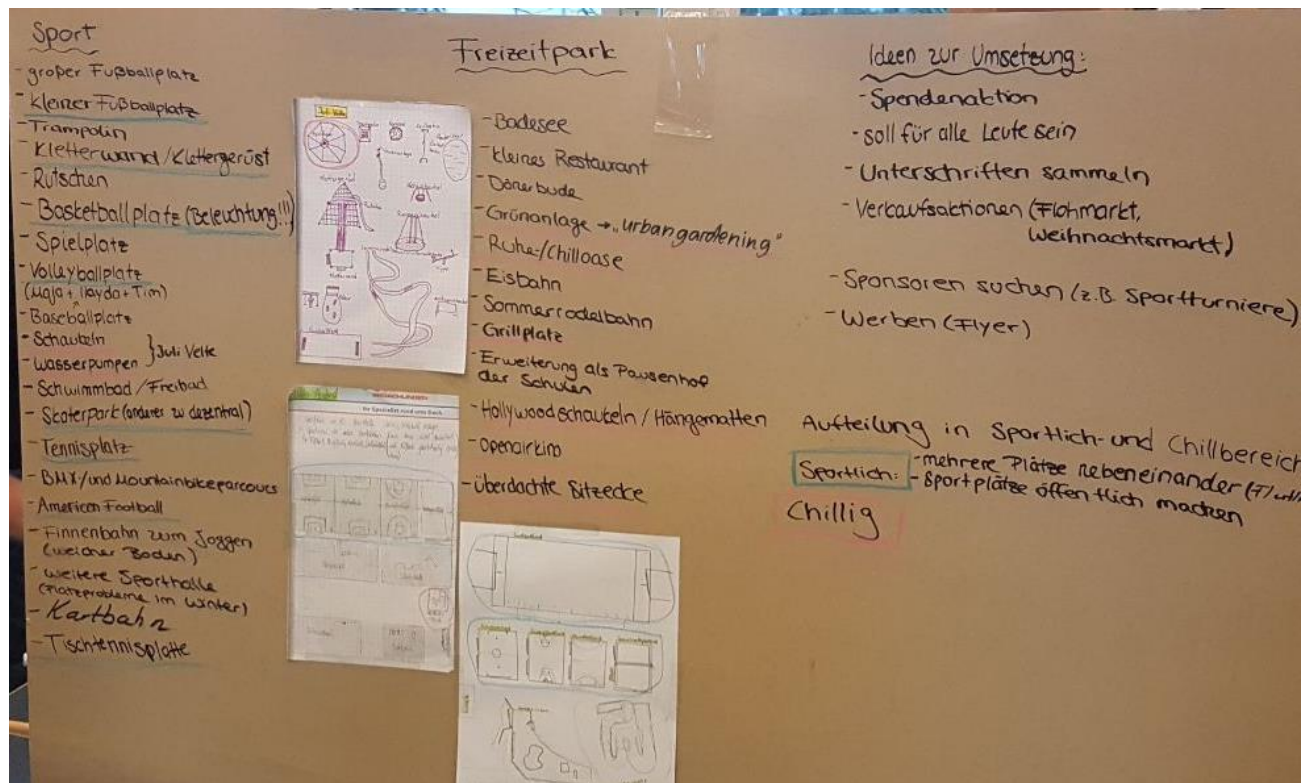 Sport
- großer Fußballplatz
- kleiner Fußballplatz
- Trampolin
- Kletterwand/Klettergerüst
- Rutschen
- Basketballplatz (Beleuchtung!!!)
- Spielplatz
- Volleyballplatz
(Maja + + Tim)
- Baseballplatz
- Schaukeln
- Wasserpumpen } Juli Velte
- Schwimmbad / Freibad
- Skaterpark (anderer zu dezentral)
- Tennisplatz
- BMX/und Mountainbikeparcours
- American Football
- Finnenbahn zum Joggen
(weicher Boden)
- weitere Sporthalle
(Platzprobleme im Winter)
- Kartbahn
- Tischtennisplatte
Freizeitpark
- Badesee
- kleines Restaurant
- Dönerbude
- Grünanlage → „urban gardening"
- Ruhe-/Chilloase
- Eisbahn
- Sommerrodelbahn
- Grillplatz
- Erweiterung als Pausenhof
der Schulen
- Hollywoodschaukeln / Hängematten
- Openairkino
- überdachte Sitzecke
Ideen zur Umsetzung:
- Spendenaktion
- soll für alle Leute sein
- Unterschriften sammeln
- Verkaufsaktionen (Flohmarkt,
Weihnachtsmarkt)
- Sponsoren suchen (z.B. Sportturniere)
- Werben (Flyer)
Aufteilung in Sportlich- und Chillbereich
Sportlich: - mehrere Plätze nebeneinander
- Sportplätze öffentlich machen
Chillig